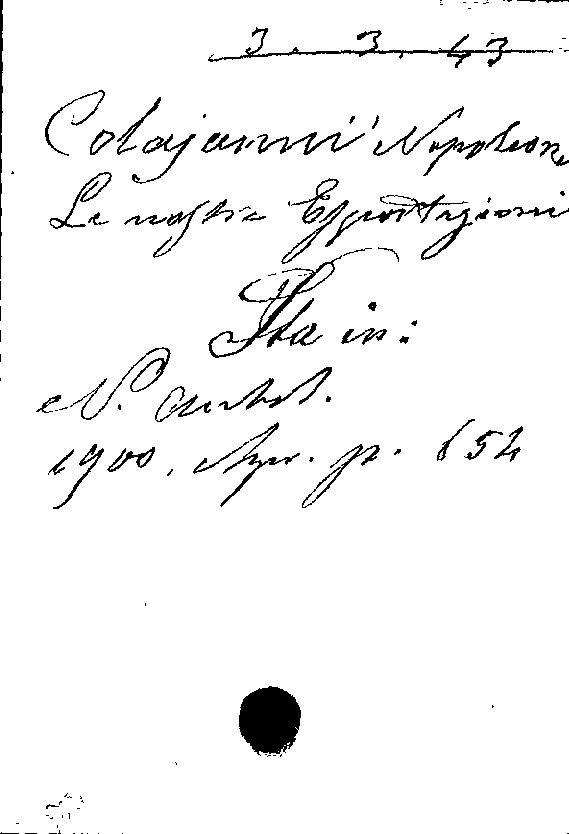 3. 3. 43
Colajanni Napoleone
Le nostre Esportazioni
Sta in:
N. Antol.
1900. Apr. p. 652